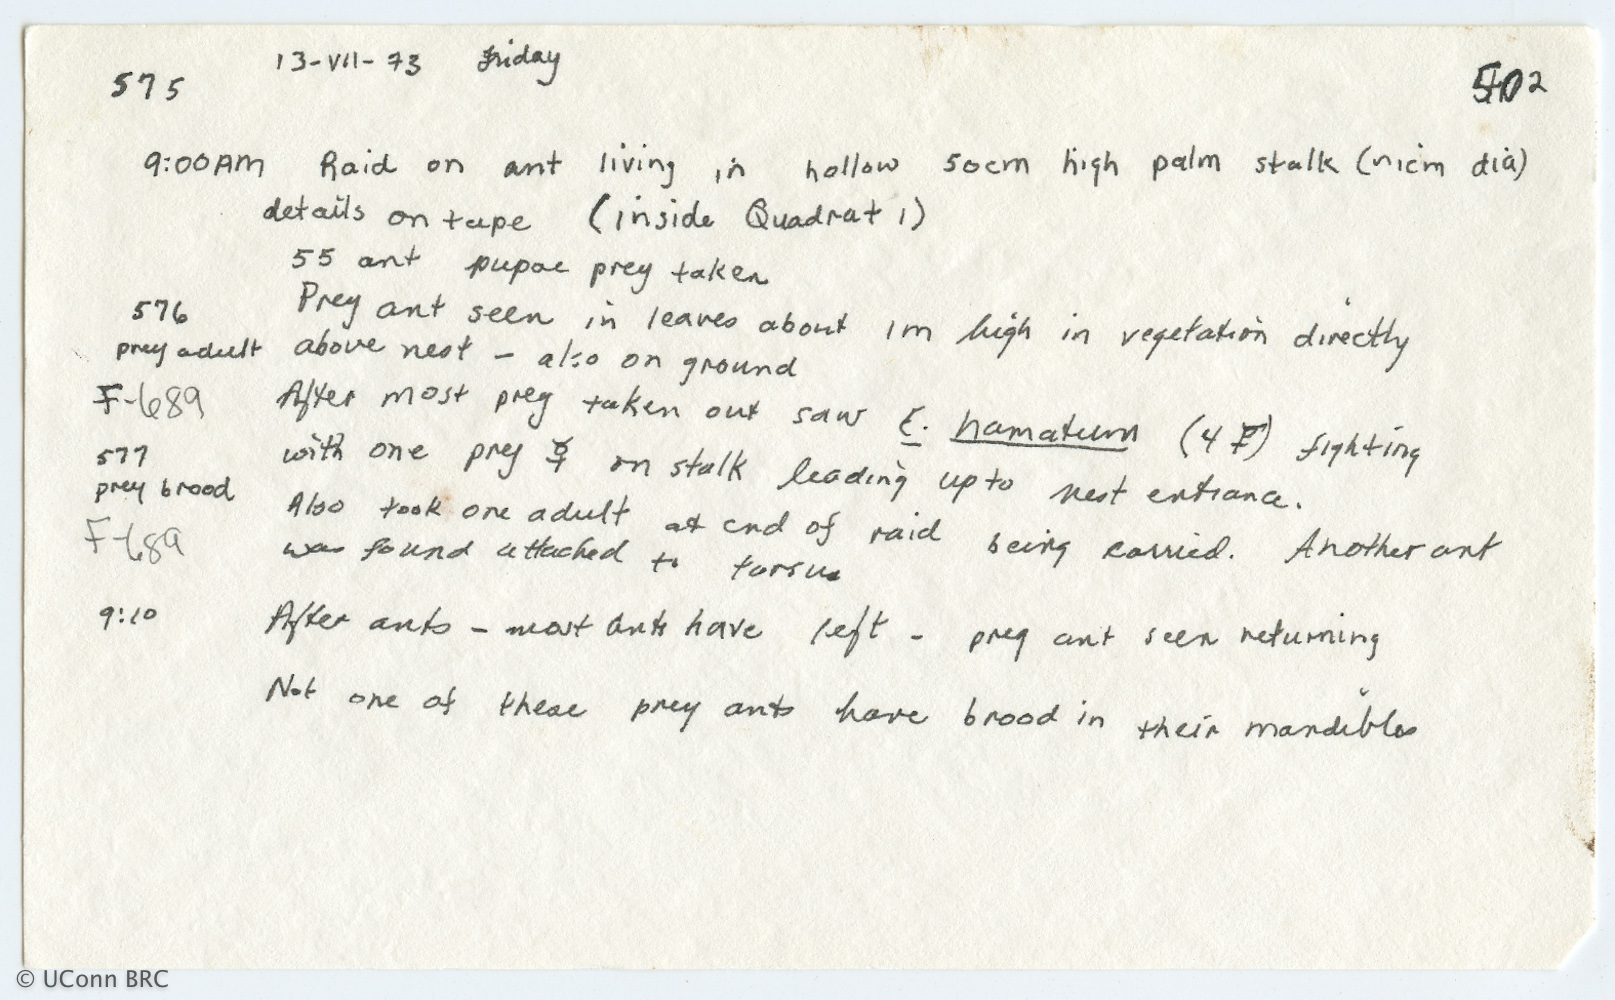 13-VII-73 Friday
575
502
9:00AM Raid on ant living in hollow 50cm high palm stalk (~1cm dia)
details on tape (inside Quadrat 1)
55 ant pupae prey taken
576 Prey ant seen in leaves about 1m high in vegetation directly
prey adult above nest - also on ground
F-689 After most prey taken out saw E. hamatum (4 ) fighting
577 with one prey ☿ on stalk leading up to nest entrance.
prey brood Also took one adult at end of raid being carried. Another ant
F-689 was found attached to tarsus
9:10 After ants - most ants have left - prey ant seen returning
Not one of these prey ants have brood in their mandibles
© UConn BRC